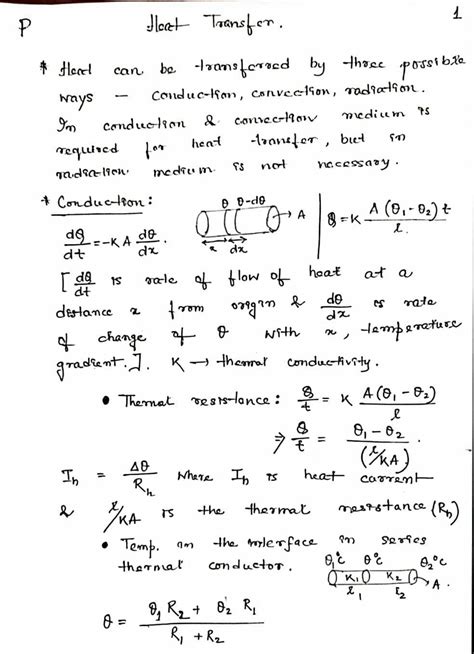 P
Heat Transfer.
1
* Heat can be transferred by three possible
ways – conduction, convection, radiation.
In conduction & convection medium is
required for heat transfer, but in
radiation medium is not necessary.
* Conduction:
θ θ-dθ
→A
x dx
dQ/dt = -KA dθ/dx.
Q = K A(θ₁-θ₂)t/l.
[dQ/dt is rate of flow of heat at a
distance x from origin & dθ/dx is rate
of change of θ with x, temperature
gradient.]. K → thermal conductivity.
• Thermal resistance: Q/t = K A(θ₁-θ₂)/l
⇒ Q/t = θ₁-θ₂/(l/KA).
Iₕ = Δθ/Rₕ where Iₕ is heat current
& l/KA is the thermal resistance (Rₕ)
• Temp. in the interface in series
thermal conductor.
θ₁°c θ°c θ₂°c
K₁ K₂ →A.
l₁ l₂
θ = θ₁R₂ + θ₂R₁/R₁+R₂